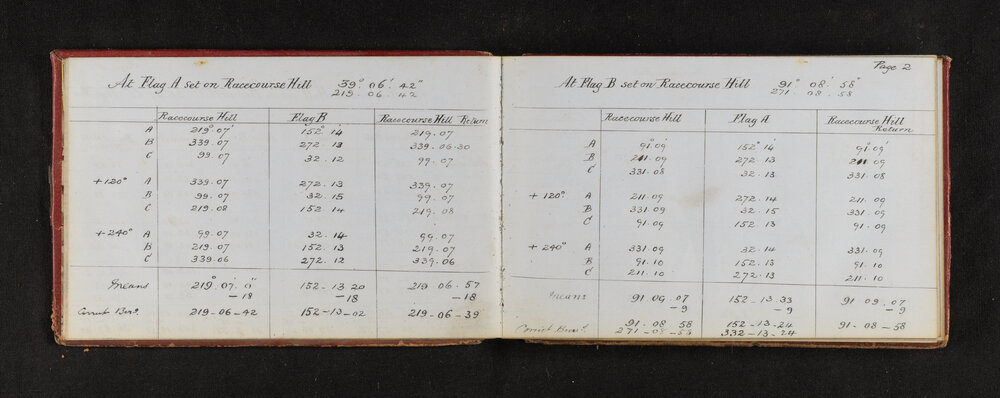 At Flag A set on Racecourse Hill 39° 06' 42"
219 . 06 . 42
Racecourse Hill Flag B Racecourse Hill Return
A 219° 07' 152° 14' 219 . 07
B 339 . 07 272 . 13 339 . 06 . 30
C 99 . 07 32 . 12 99 . 07
+ 120° A 339 . 07 272 . 13 339 . 07
B 99 . 07 32 . 15 99 . 07
C 219 . 08 152 . 14 219 . 08
+ 240° A 99 . 07 32 . 14 99 . 07
B 219 . 07 152 . 13 219 . 07
C 339 . 06 272 . 12 339 . 06
Means 219° 07' 0" 152 - 13 20 219 06 . 57
- 18 - 18 - 18
Correct Bear^g. 219 - 06 - 42 152 - 13 - 02 219 - 06 - 39
Page 2
At Flag B set on Racecourse Hill 91° 08' 58"
271 . 08 . 58
Racecourse Hill Flag A Racecourse Hill
Return
A 91° 09' 152° 14' 91° 09'
B 211 . 09 272 . 13 211 09
C 331 . 08 32 . 13 331 . 08
+ 120° A 211 . 09 272 . 14 211 . 09
B 331 . 09 32 . 15 331 . 09
C 91 . 09 152 . 13 91 . 09
+ 240° A 331 . 09 32 . 14 331 . 09
B 91 . 10 152 . 13 91 . 10
C 211 . 10 272 . 13 211 . 10
Means 91 09 . 07 152 - 13 . 33 91 09 . 07
- 9 - 9 - 9
Correct Bear^g. 91 . 08 58 152 - 13 - 24 91 - 08 - 58
271 - 08 - 58 332 - 13 - 24